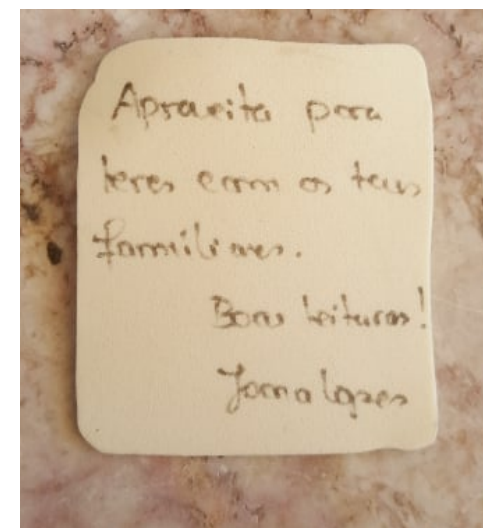 Aproveita para
leres com os teus
familiares.
Boas leituras!
Joana Lopes